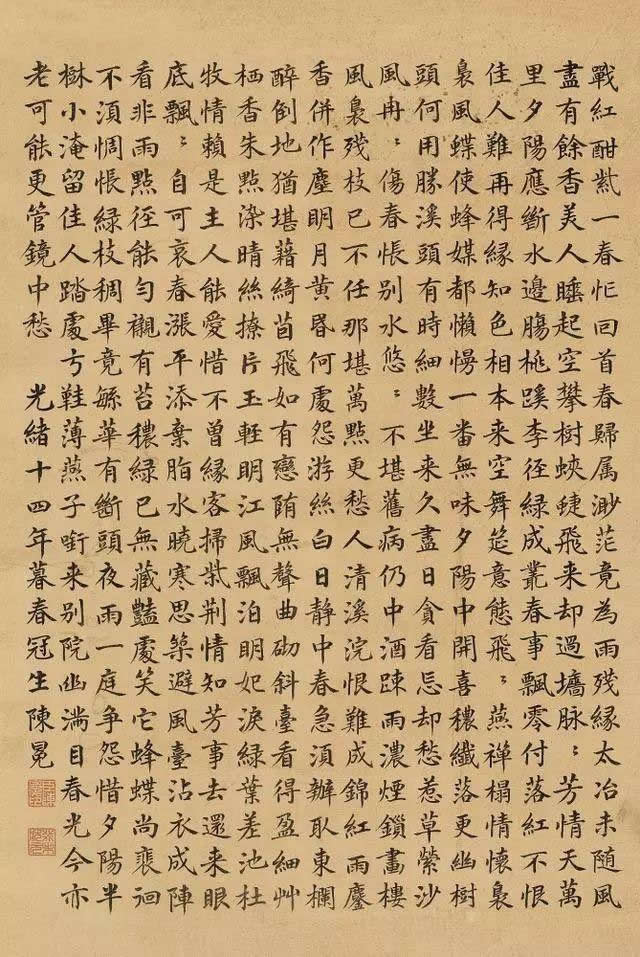 戰紅酣紫一春忙回首春歸属渺茫竟為雨残緣太冶未随風
盡有餘香美人睡起空攀樹蛺蜨飛来却過墻脉〻芳情天萬
里夕陽應斷水邊膓桃蹊李徑綠成叢春事飄零付落紅不恨
佳人難再得緣知色相本来空舞筵意態飛〻燕禪榻情懷裊
裊風蝶使蜂媒都懶慢一番無味夕陽中開喜穠纖落更幽樹
頭何用勝溪頭有時細數坐来久盡日貪看忘却愁惹草縈沙
風冉〻傷春悵別水悠〻不堪舊病仍中酒踈雨濃煙鎖畫樓
風裊殘枝已不任那堪萬點更愁人清溪浣恨難成錦紅雨鏖
香併作塵明月黄昬何處怨游絲白日靜中春急須辦取東欄
醉倒地猶堪藉綺茵飛如有戀隋無聲曲砌斜臺看得盈細艸
栖香朱點染晴絲撩片玉輕明江風飄泊明妃淚綠葉差池杜
牧情賴是主人能愛惜不曾緣客掃柴荆情知芳事去還来眼
底飄〻自可哀春漲平添棄脂水曉寒思築避風臺沾衣成陣
看非雨點徑能勻襯有苔穠綠已無藏豔處笑它蜂蝶尚裵徊
不須惆悵綠枝稠畢竟緐華有斷頭夜雨一庭争怨惜夕陽半
樹小淹留佳人踏處弓鞋薄燕子啣来別院幽满目春光今亦
老可能更管鏡中愁 光緒十四年暮春冠生陳冕